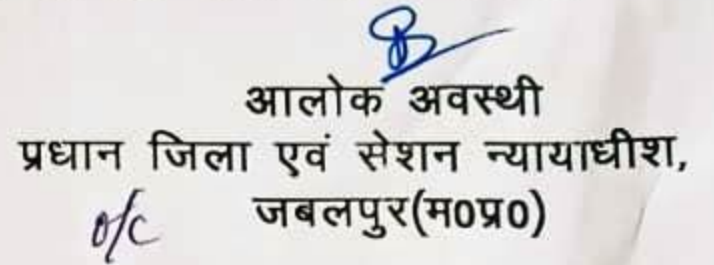 आलोक अवस्थी
प्रधान जिला एवं सेशन न्यायाधीश,
जबलपुर(म0प्र0)
o/c